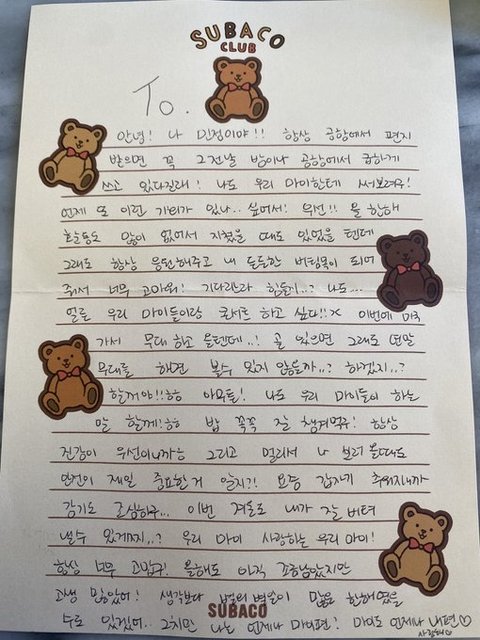 SUBACO
CLUB
To.
안녕! 나 민정이야!! 항상 공항에서 편지
받으면 꼭 그전날 밤이나 공항에서 급하게
쓰고 있다길래! 나도 우리 마이한테 써보려우!
언제 또 이런 기회가 있나.. 싶어서! 우선!! 올 한해
활동도 많이 없어서 지쳤을 때도 있었을 텐데
그래도 항상 응원해주고 내 든든한 버팀목이 되어
줘서 너무 고마워! 기다리느라 힘들지..? 나도...
얼른 우리 마이들이랑 콘서트 하고 싶다!! 이번에 미국
가서 무대 하고 올텐데..! 곧 있으면 그래도 연말
무대를 해면 볼수 있지 않을까..? 하겠지..?
할꺼야!!ㅎㅎ 아무튼! 나도 우리 마이들이 하는
말 할께!ㅎㅎ 밥 꼭꼭 잘 챙겨먹우! 항상
건강이 우선이니까 그리고 멀리서 나 보러 올때도
안전이 제일 중요한거 알지?! 요즘 갑자기 추워지니까
감기도 조심하구... 이번 겨울도 내가 잘 버텨
낼수 있겠지..? 우리 마이 사랑하는 우리 마이!
항상 너무 고맙구! 올해도 아직 조금남았지만
고생 많았어! 생각보다 변수가 많은 한해였을
SUBACO
수도 있겠어.. 그치만 나는 언제나 마이편! 마이도 언제나 내편♡
사랑해♡